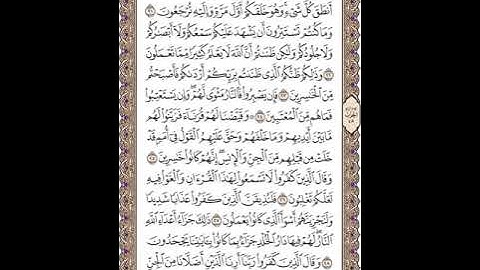 أَنطَقَ كُلَّ شَىْءٍ وَهُوَ خَلَقَكُمْ أَوَّلَ مَرَّةٍ وَإِلَيْهِ تُرْجَعُونَ ٢١
وَمَا كُنتُمْ تَسْتَتِرُونَ أَن يَشْهَدَ عَلَيْكُمْ سَمْعُكُمْ وَلَآ أَبْصَٰرُكُمْ
وَلَا جُلُودُكُمْ وَلَٰكِن ظَنَنتُمْ أَنَّ ٱللَّهَ لَا يَعْلَمُ كَثِيرًا مِّمَّا تَعْمَلُونَ
٢٢ وَذَٰلِكُمْ ظَنُّكُمُ ٱلَّذِى ظَنَنتُم بِرَبِّكُمْ أَرْدَىٰكُمْ فَأَصْبَحْتُم
مِّنَ ٱلْخَٰسِرِينَ ٢٣ فَإِن يَصْبِرُوا۟ فَٱلنَّارُ مَثْوًى لَّهُمْ وَإِن يَسْتَعْتِبُوا۟
فَمَا هُم مِّنَ ٱلْمُعْتَبِينَ ٢٤ وَقَيَّضْنَا لَهُمْ قُرَنَآءَ فَزَيَّنُوا۟ لَهُم
مَّا بَيْنَ أَيْدِيهِمْ وَمَا خَلْفَهُمْ وَحَقَّ عَلَيْهِمُ ٱلْقَوْلُ فِىٓ أُمَمٍ قَدْ
خَلَتْ مِن قَبْلِهِم مِّنَ ٱلْجِنِّ وَٱلْإِنسِ إِنَّهُمْ كَانُوا۟ خَٰسِرِينَ ٢٥
وَقَالَ ٱلَّذِينَ كَفَرُوا۟ لَا تَسْمَعُوا۟ لِهَٰذَا ٱلْقُرْءَانِ وَٱلْغَوْا۟ فِيهِ
لَعَلَّكُمْ تَغْلِبُونَ ٢٦ فَلَنُذِيقَنَّ ٱلَّذِينَ كَفَرُوا۟ عَذَابًا شَدِيدًا
وَلَنَجْزِيَنَّهُمْ أَسْوَأَ ٱلَّذِى كَانُوا۟ يَعْمَلُونَ ٢٧ ذَٰلِكَ جَزَآءُ أَعْدَآءِ ٱللَّهِ
ٱلنَّارُ لَهُمْ فِيهَا دَارُ ٱلْخُلْدِ جَزَآءًۢ بِمَا كَانُوا۟ بِـَٔايَٰتِنَا يَجْحَدُونَ
٢٨ وَقَالَ ٱلَّذِينَ كَفَرُوا۟ رَبَّنَآ أَرِنَا ٱلَّذَيْنِ أَضَلَّانَا مِنَ ٱلْجِنِّ